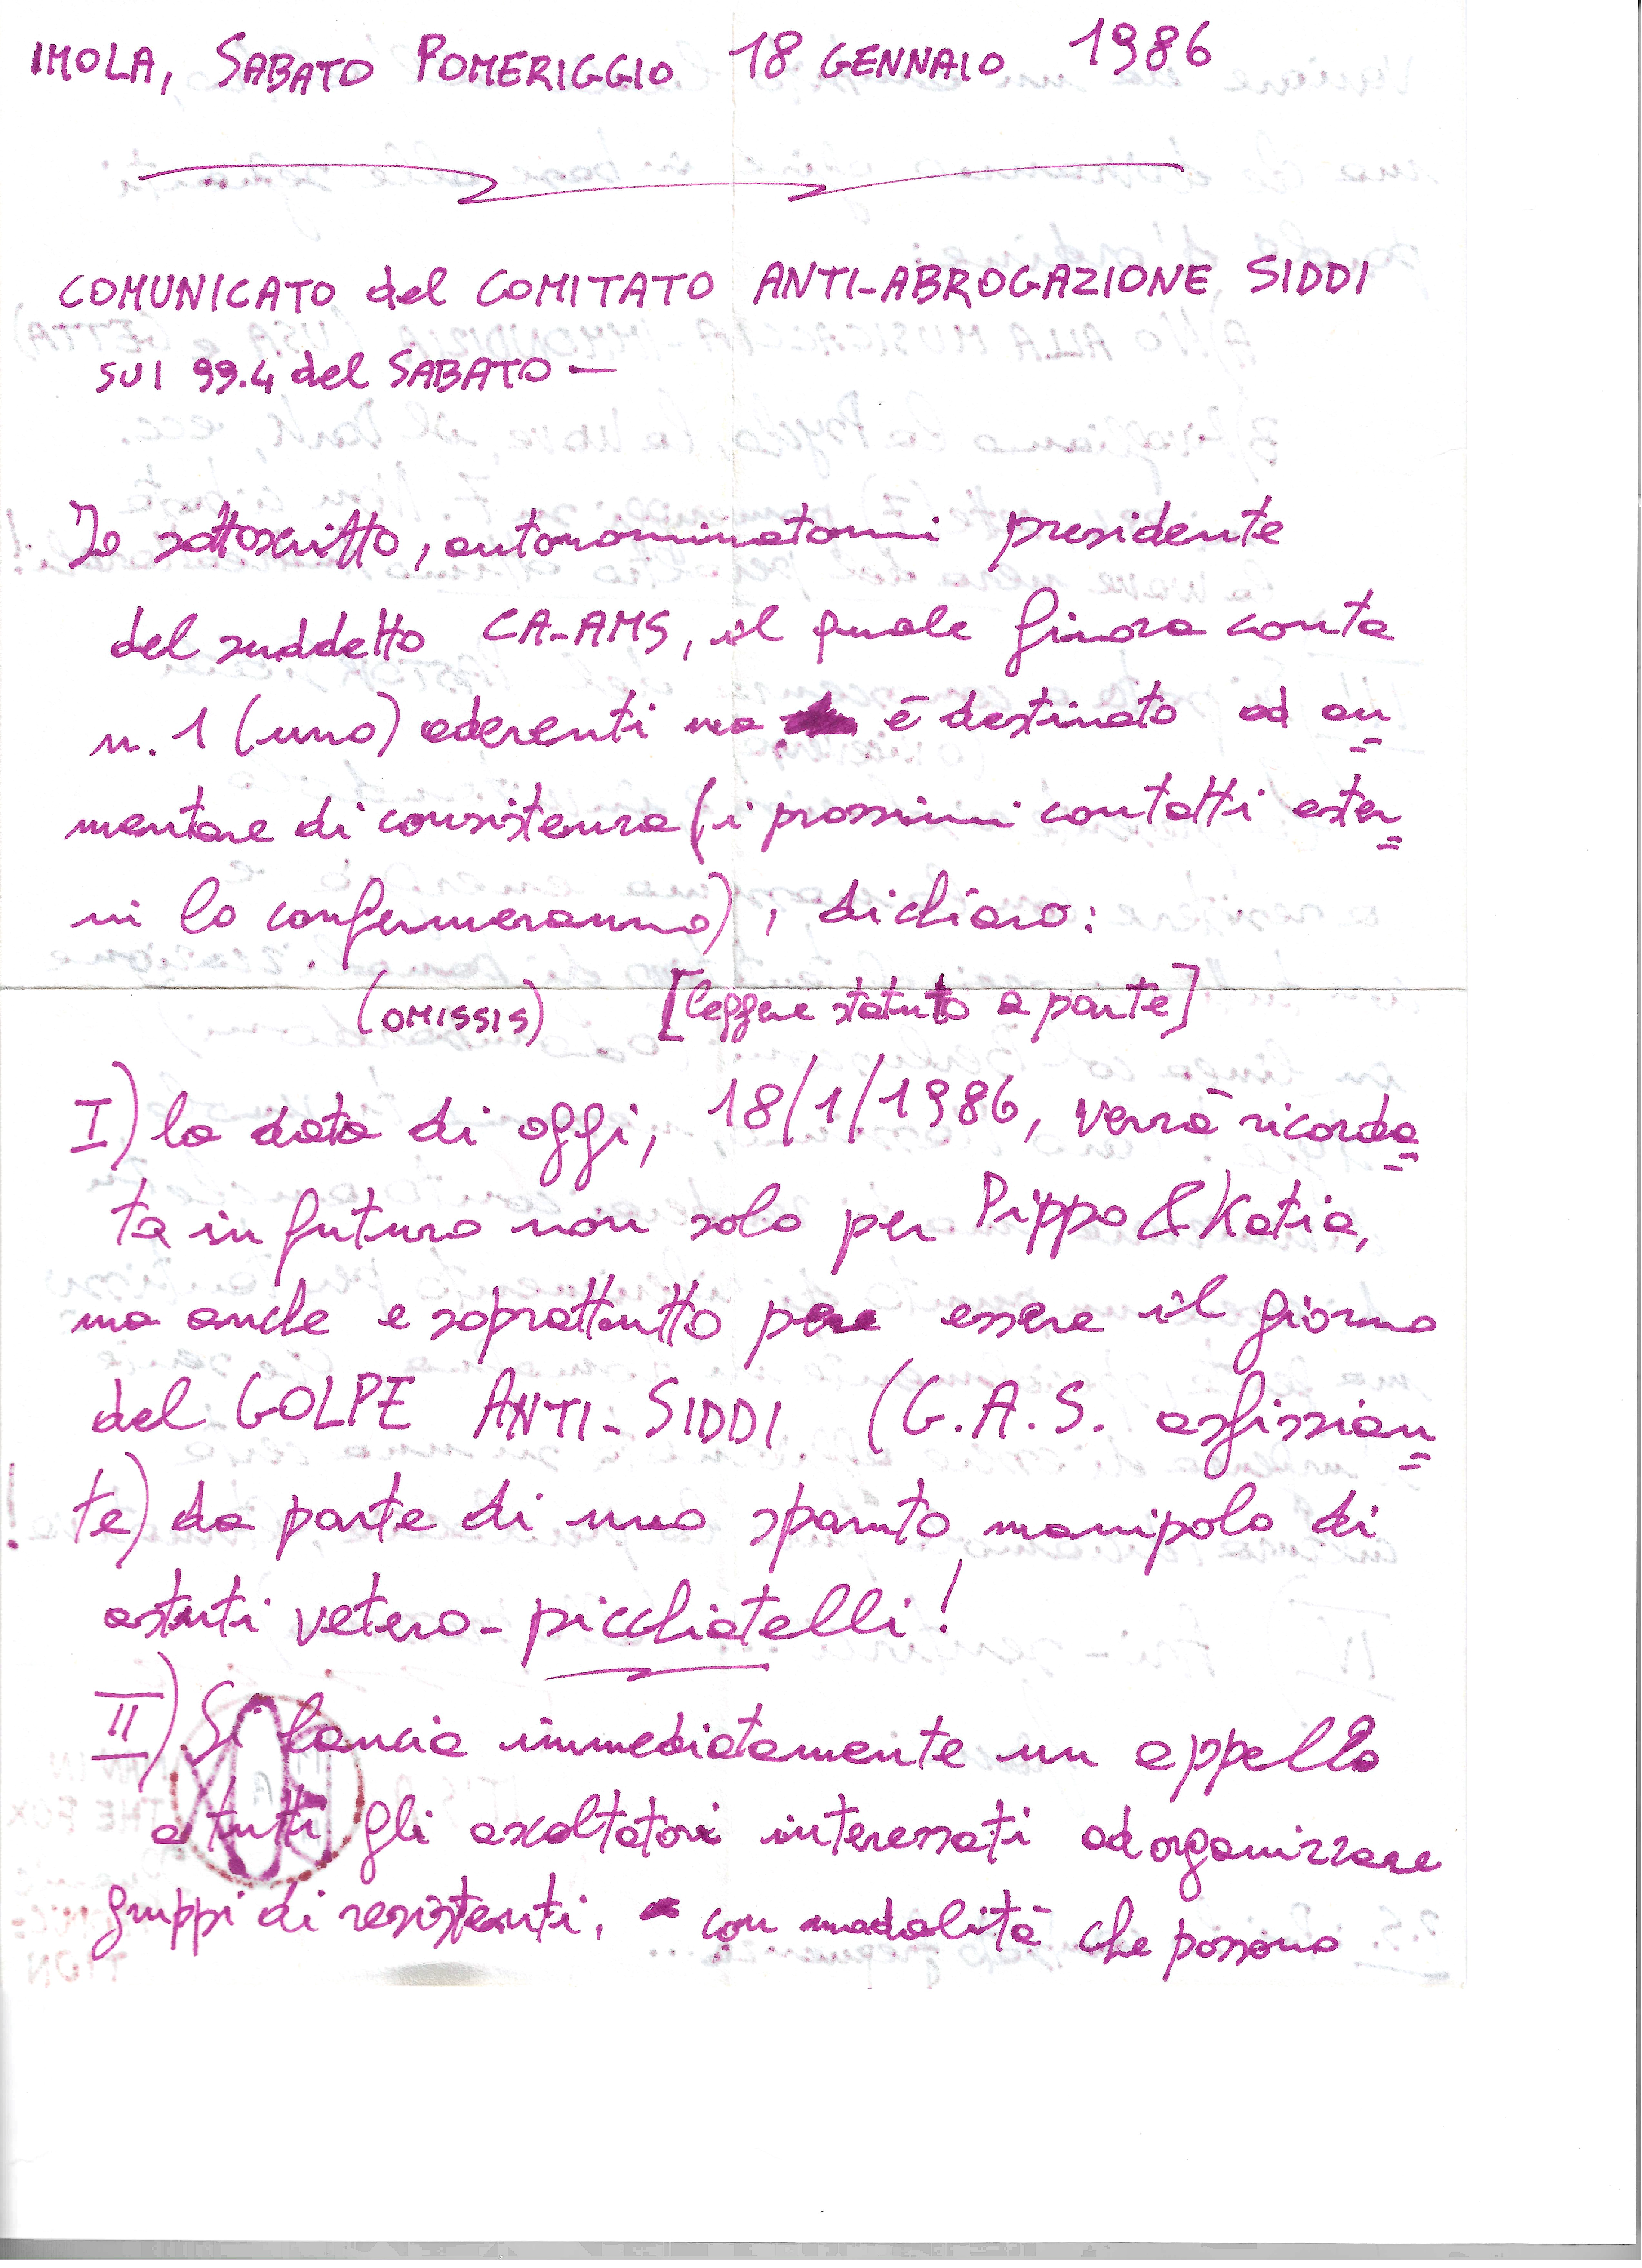 IMOLA, SABATO POMERIGGIO 18 GENNAIO 1986
COMUNICATO del COMITATO ANTI-ABROGAZIONE SIDDI
SUI 99.4 del SABATO —
Io sottoscritto, autonominatomi presidente
del suddetto CA-AMS, il quale finora conta
n. 1 (uno) aderenti ma è destinato ad au=
mentare di consistenza (i prossimi contatti ester=
ni lo confermeranno), dichiaro:
(OMISSIS) [leggere statuto a parte]
I) la data di oggi, 18/1/1986, verrà ricorda=
ta in futuro non solo per Pippo & Katia,
ma anche e soprattutto per essere il giorno
del GOLPE ANTI-SIDDI (G.A.S. asfissian=
te) da parte di uno sparuto manipolo di
astuti vetero-picchiatelli!
II) Si lancia immediatamente un appello
a tutti gli ascoltatori interessati ad organizzare
gruppi di resistenti, con modalità che possono